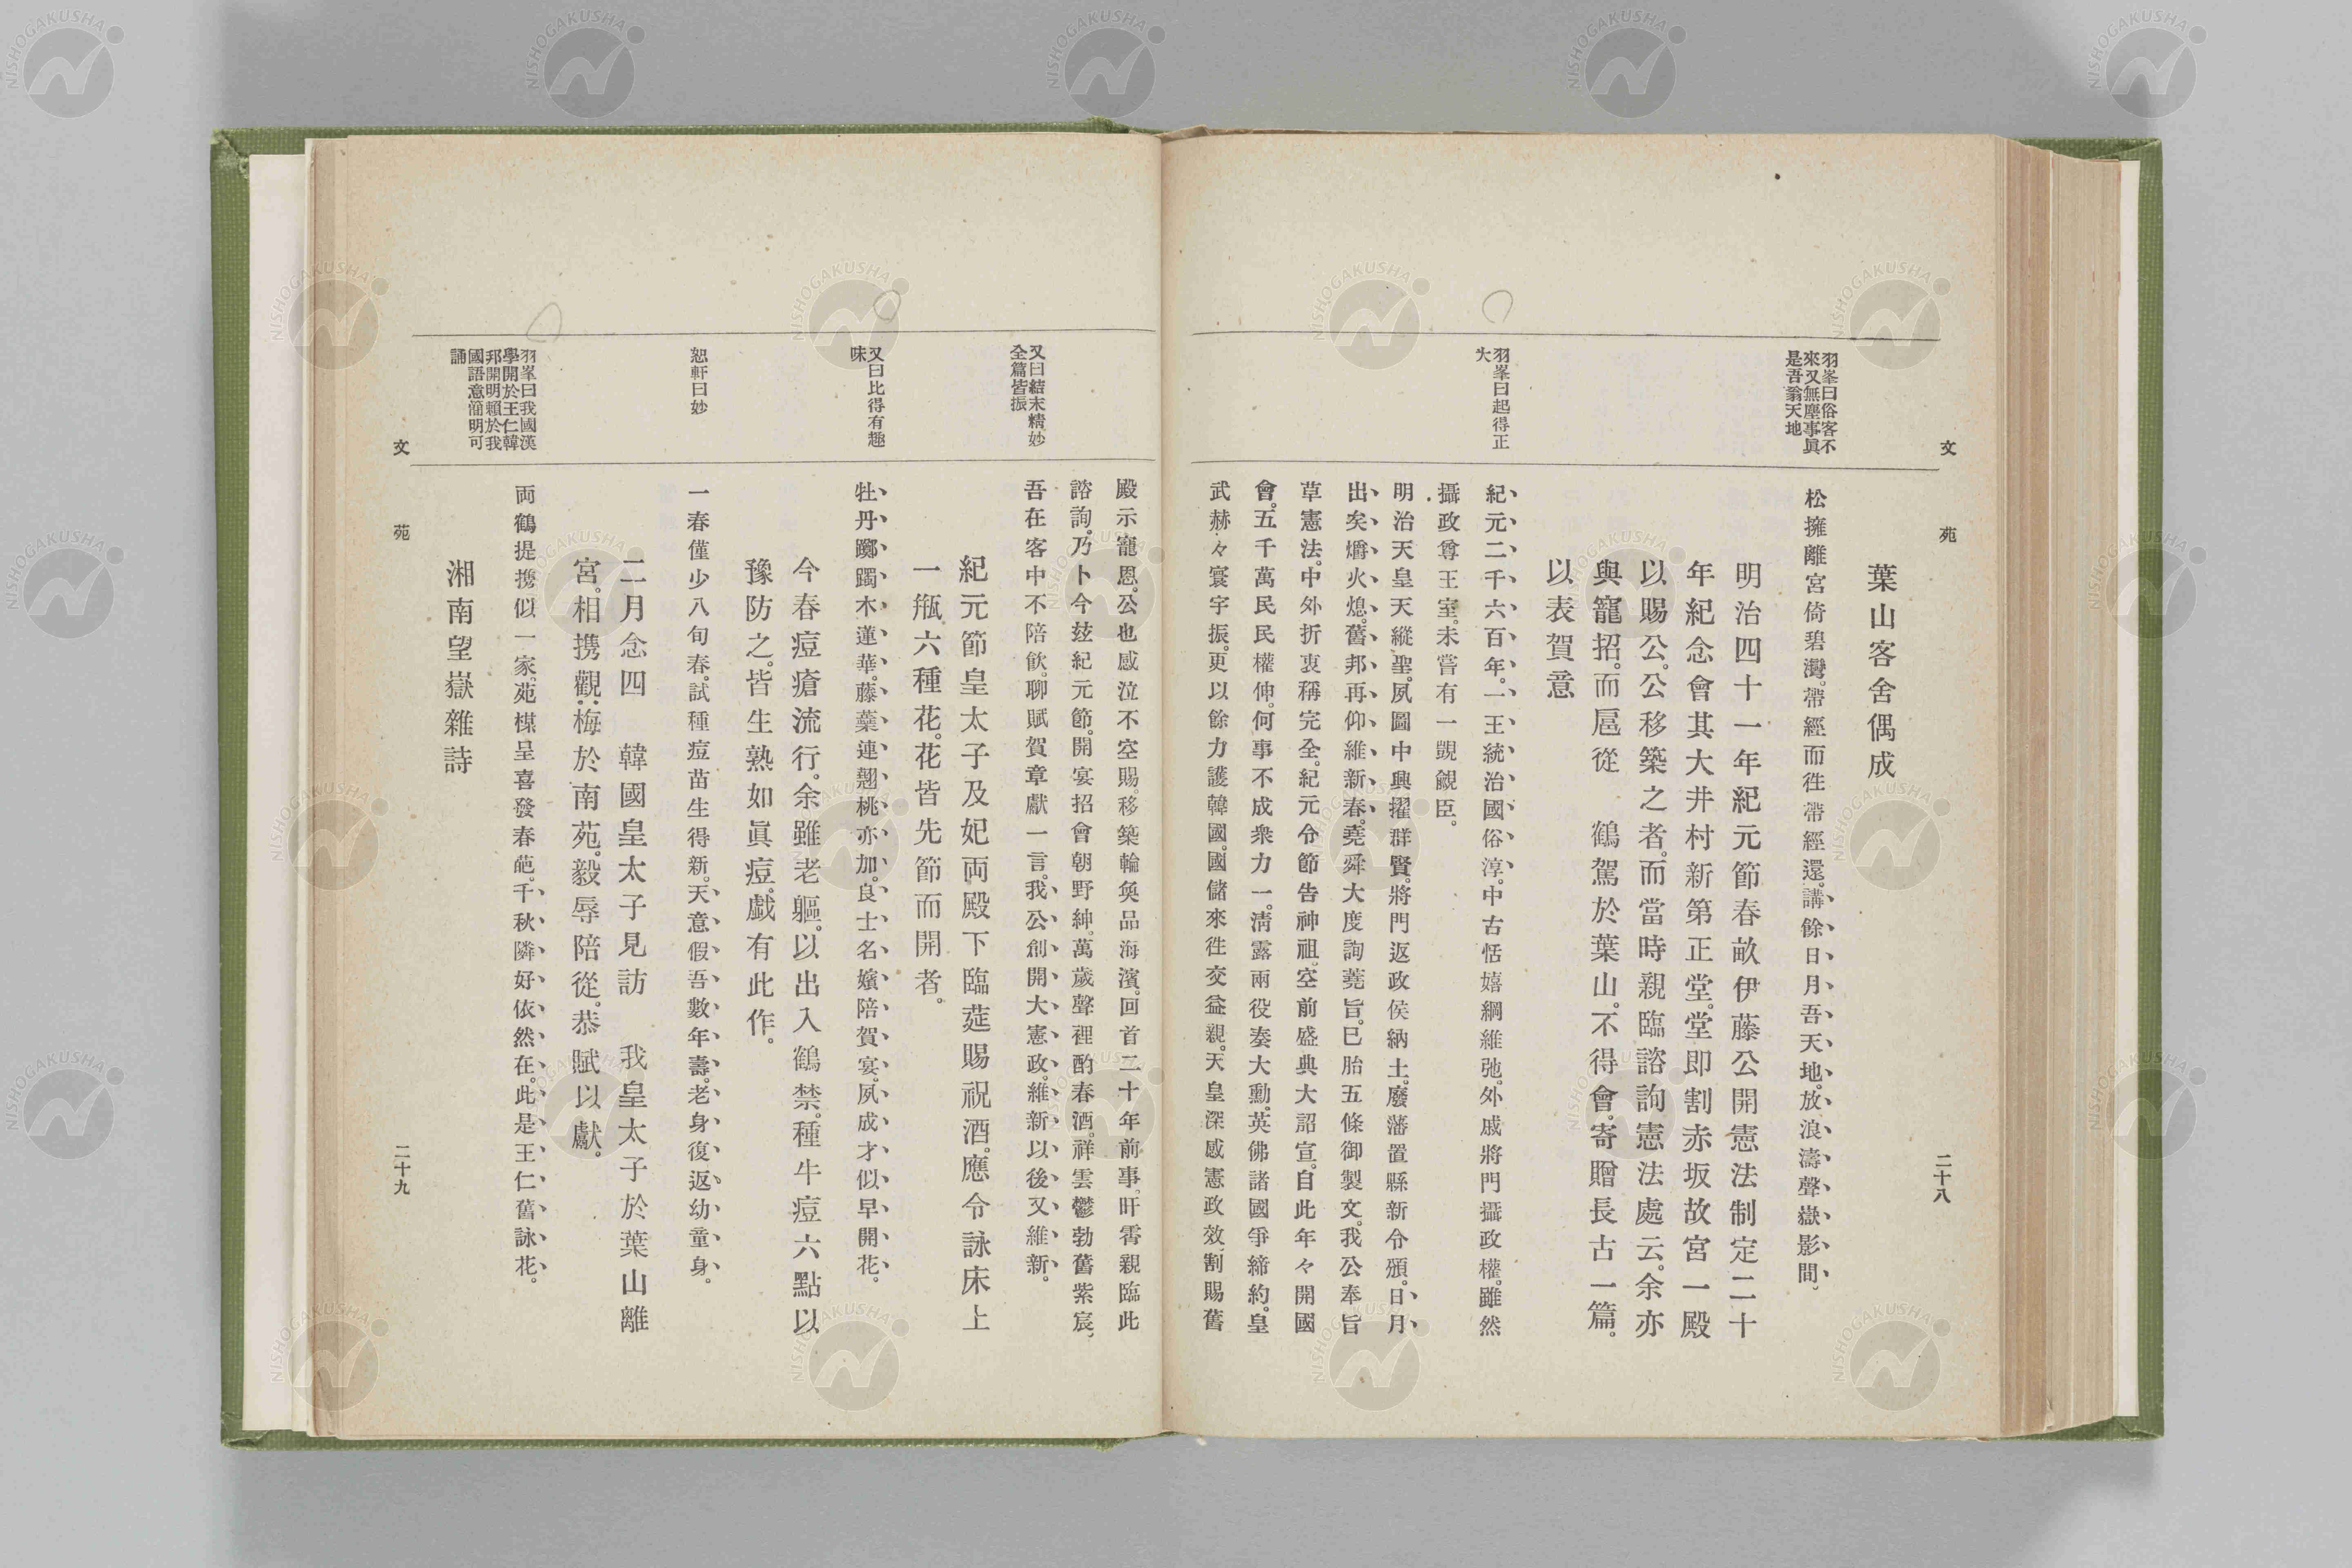 文　苑
二十八
羽峯曰俗客不
來又無塵事眞
是吾翁天地
羽峯曰起得正
大
葉山客舍偶成
松擁離宮倚碧灣。帶經而徃帶經還。講餘日月吾天地。放浪濤聲嶽影間。
明治四十一年紀元節春畝伊藤公開憲法制定二十
年紀念會其大井村新第正堂。堂即割赤坂故宮一殿
以賜公。公移築之者。而當時親臨諮詢憲法處云。余亦
與寵招。而扈從　鶴駕於葉山。不得會。寄贈長古一篇。
以表賀意
紀元二千六百年。一王統治國俗淳。中古恬嬉綱維弛。外戚將門攝政權。雖然
攝政尊王室。未嘗有一覬覦臣。
明治天皇天縱聖。夙圖中興擢群賢。將門返政侯納土。廢藩置縣新令頒。日月
出矣爝火熄。舊邦再仰維新春。堯舜大度詢蕘旨。已胎五條御製文。我公奉旨
草憲法。中外折衷稱完全。紀元令節告神祖。空前盛典大詔宣。自此年々開國
會。五千萬民民權伸。何事不成衆力一。淸露兩役奏大勳。英佛諸國爭締約。皇
武赫々寰宇振。更以餘力護韓國。國儲來徃交益親。天皇深感憲政效。割賜舊
又曰結末精妙
全篇皆振
又曰比得有趣
味
恕軒曰妙
羽峯曰我國漢
學開於王仁韓
邦開明賴於我
國語意簡明可
誦
殿示寵恩。公也感泣不空賜。移築輪奐品海濱。回首二十年前事。旰霄親臨此
諮詢。乃卜今玆紀元節。開宴招會朝野紳。萬歲聲裡酌春酒。祥雲鬱勃舊紫宸。
吾在客中不陪飮。聊賦賀章獻一言。我公創開大憲政。維新以後又維新。
紀元節皇太子及妃両殿下臨莚賜祝酒。應令詠床上
一瓶六種花。花皆先節而開者。
牡丹躑躅木蓮華。藤蘂連翹桃亦加。良士名嬪陪賀宴。夙成才似早開花。
今春痘瘡流行。余雖老軀。以出入鶴禁。種牛痘六點以
豫防之。皆生熟如眞痘。戲有此作。
一春僅少八旬春。試種痘苗生得新。天意假吾數年壽。老身復返幼童身。
二月念四　韓國皇太子見訪　我皇太子於葉山離
宮。相携觀梅於南苑。毅辱陪從。恭賦以獻。
両鶴提携似一家。苑楳呈喜發春葩。千秋隣好依然在。此是王仁舊詠花。
湘南望嶽雜詩
文　苑
二十九